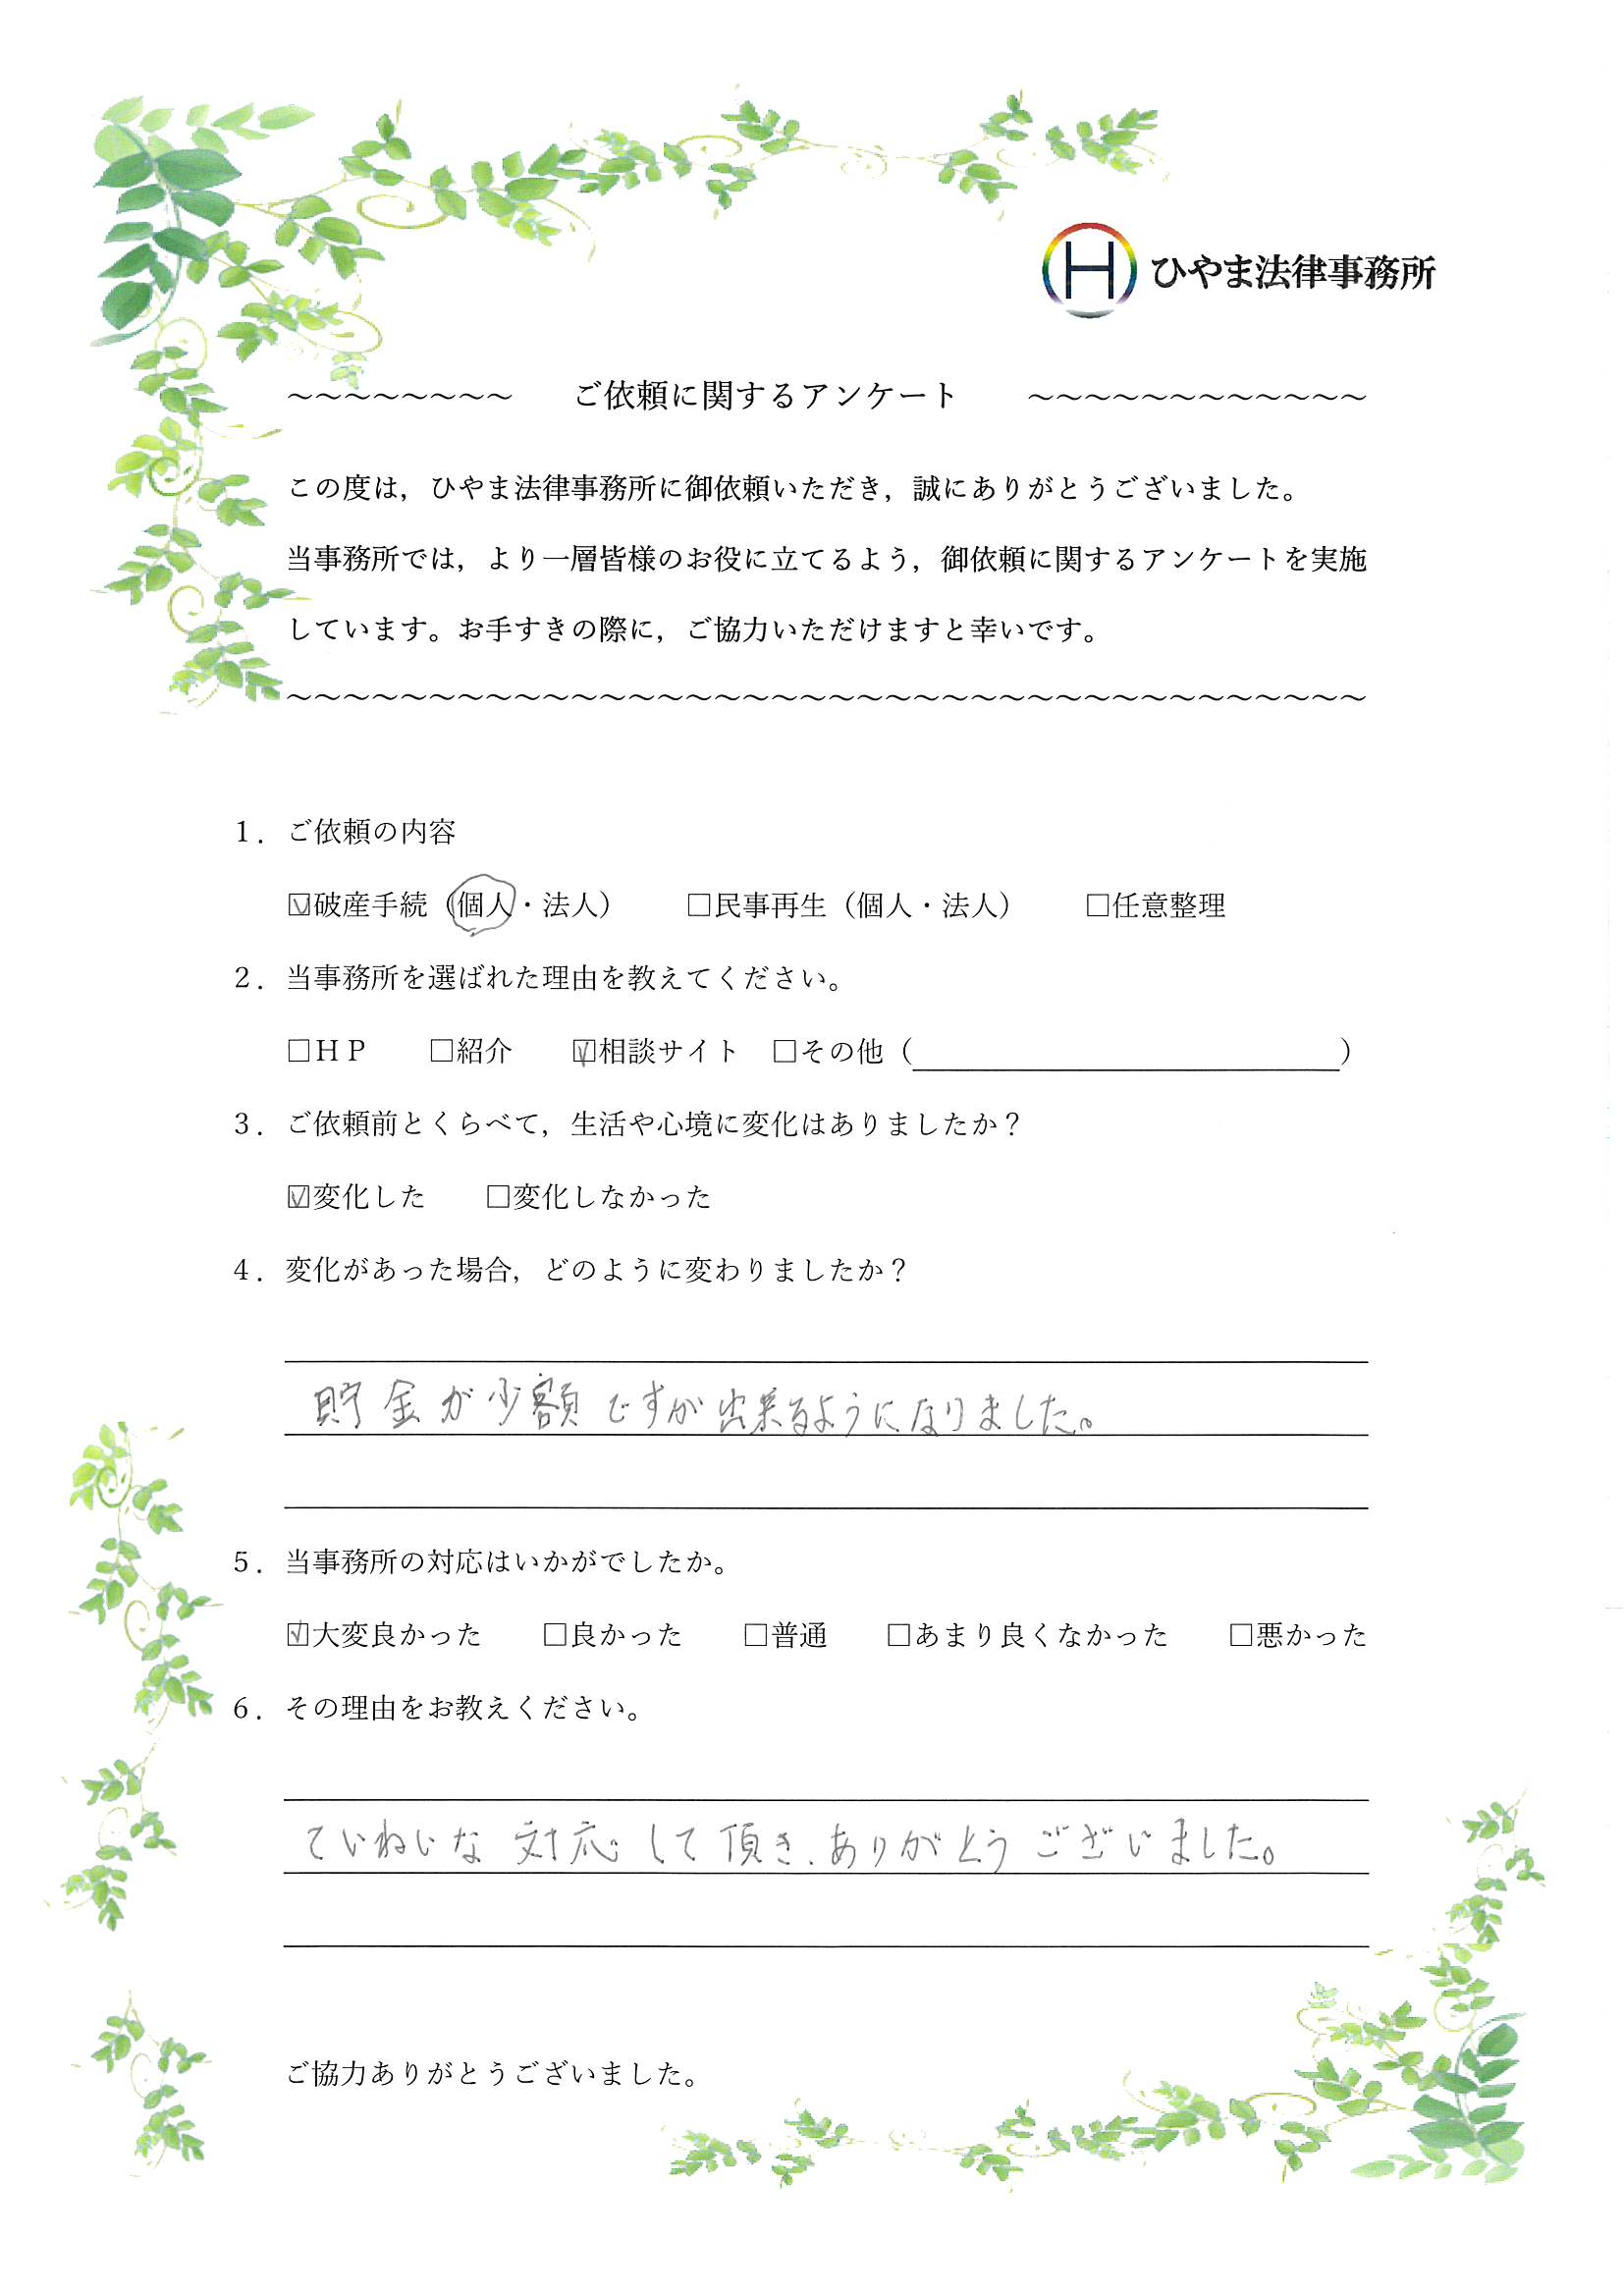 H ひやま法律事務所
～～～～～～～～　ご依頼に関するアンケート　～～～～～～～～～～～～
この度は，ひやま法律事務所に御依頼いただき，誠にありがとうございました。
当事務所では，より一層皆様のお役に立てるよう，御依頼に関するアンケートを実施
しています。お手すきの際に，ご協力いただけますと幸いです。
～～～～～～～～～～～～～～～～～～～～～～～～～～～～～～～～～～～～～～
１．ご依頼の内容
☑破産手続（個人・法人）　　□民事再生（個人・法人）　　□任意整理
２．当事務所を選ばれた理由を教えてください。
□ＨＰ　　□紹介　　☑相談サイト　□その他（　　　　　　　　　　　　　　　）
３．ご依頼前とくらべて，生活や心境に変化はありましたか？
☑変化した　　□変化しなかった
４．変化があった場合，どのように変わりましたか？
貯金が少額ですが出来るようになりました。
５．当事務所の対応はいかがでしたか。
☑大変良かった　　□良かった　　□普通　　□あまり良くなかった　　□悪かった
６．その理由をお教えください。
ていねいな対応して頂き、ありがとうございました。
ご協力ありがとうございました。